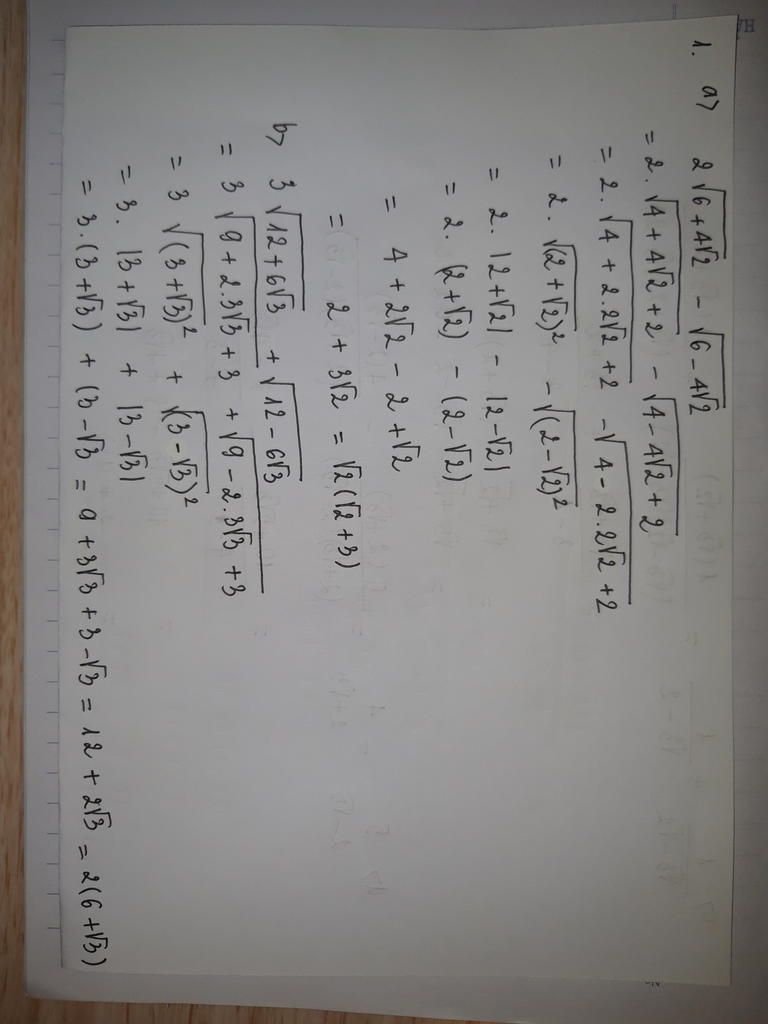 1. a) 2√(6+4√2) - √(6-4√2)
= 2.√(4+4√2+2) - √(4-4√2+2)
= 2.√(4+2.2√2+2) - √(4-2.2√2+2)
= 2.√(2+√2)² - √(2-√2)²
= 2. |2+√2| - |2-√2|
= 2. (2+√2) - (2-√2)
= 4 + 2√2 - 2 + √2
= 2 + 3√2 = √2(√2+3)
b) 3√(12+6√3) + √(12-6√3)
= 3√(9+2.3√3+3) + √(9-2.3√3+3)
= 3 √(3+√3)² + √(3-√3)²
= 3. |3+√3| + |3-√3|
= 3.(3+√3) + (3-√3 = 9+3√3+3-√3 = 12+2√3 = 2(6+√3)